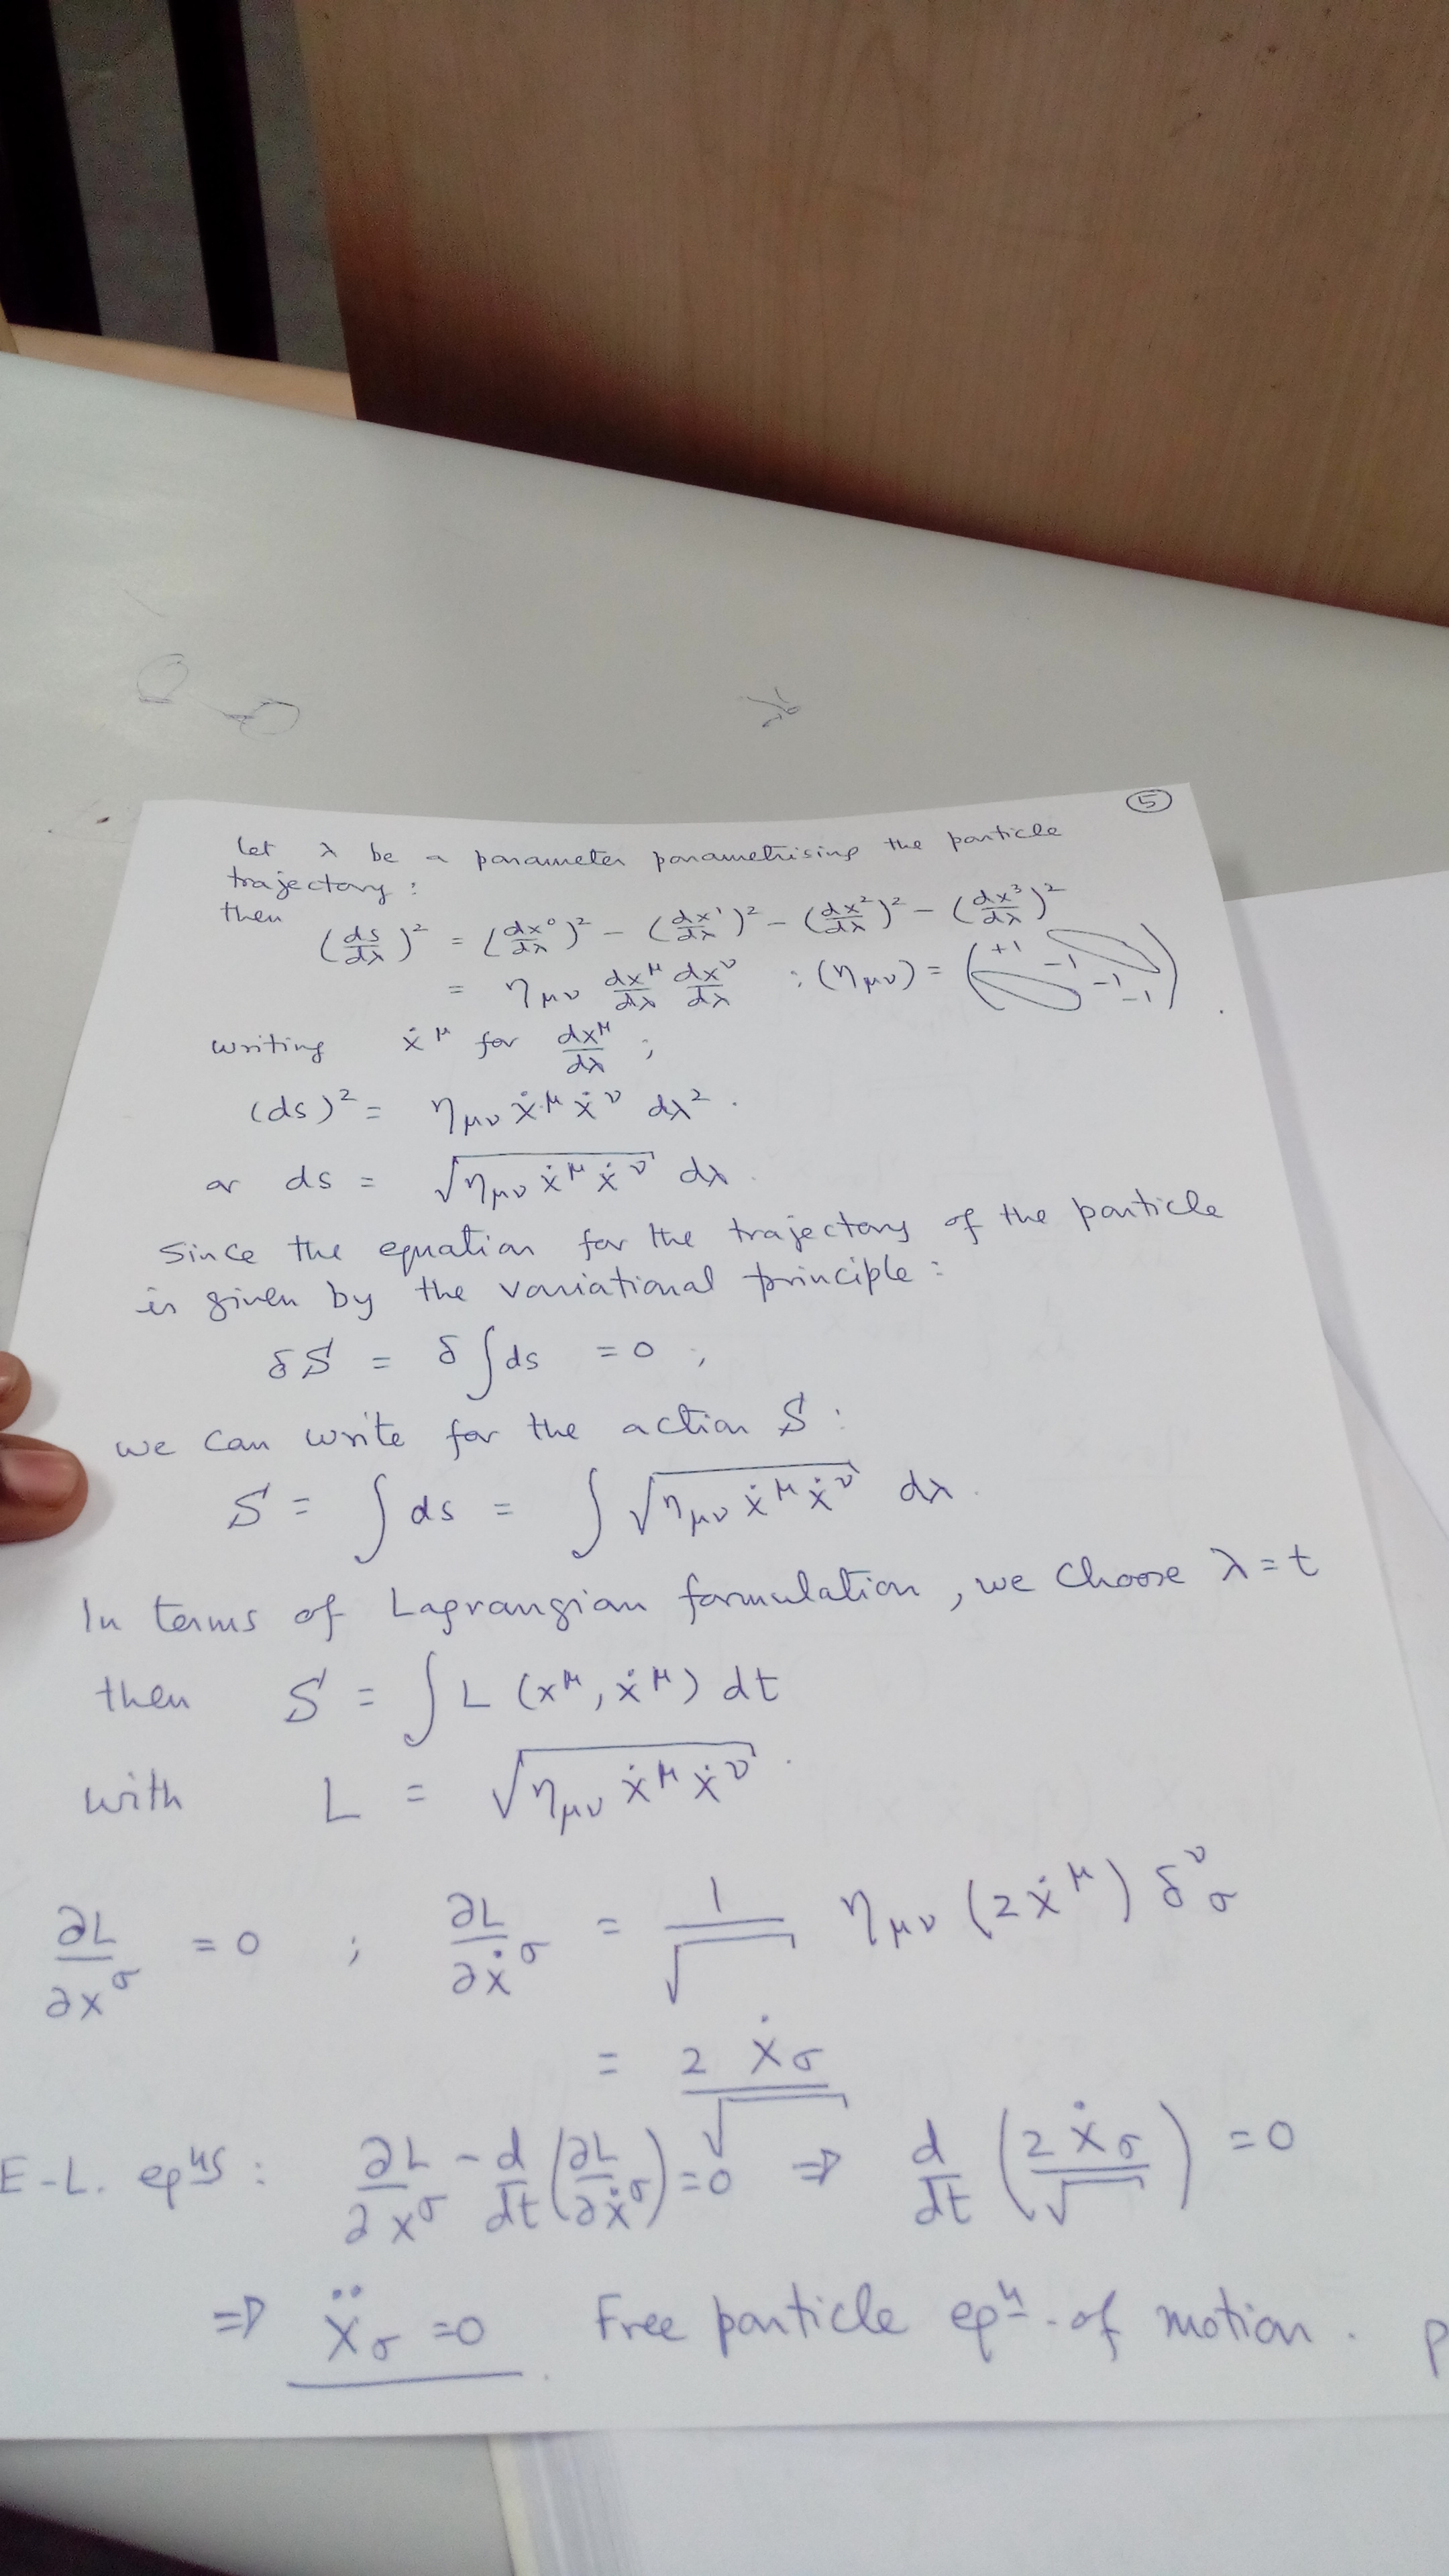 ⑤
Let λ be a parameter parametrising the particle
trajectory :
then
(ds/dλ)² = (dx⁰/dλ)² − (dx¹/dλ)² − (dx²/dλ)² − (dx³/dλ)²
= η_μν dx^μ/dλ dx^ν/dλ ; (η_μν) = ( +1 −1 −1 −1 )
writing ẋ^μ for dx^μ/dλ ;
(ds)² = η_μν ẋ^μ ẋ^ν dλ² .
or ds = √(η_μν ẋ^μ ẋ^ν) dλ .
Since the equation for the trajectory of the particle
is given by the variational principle :
δS = δ∫ds = 0 ,
we can write for the action S :
S = ∫ ds = ∫ √(η_μν ẋ^μ ẋ^ν) dλ .
In terms of Lagrangian formulation, we choose λ = t
then S = ∫ L (x^μ, ẋ^μ) dt
with L = √(η_μν ẋ^μ ẋ^ν) .
∂L/∂x^σ = 0 ; ∂L/∂ẋ^σ = 1/√ η_μν (2ẋ^μ) δ^ν_σ
= 2 ẋ_σ/√
E-L. eqns : ∂L/∂x^σ − d/dt (∂L/∂ẋ^σ) = 0 ⇒ d/dt (2 ẋ_σ/√) = 0
⇒ ẍ_σ = 0 . Free particle eqn. of motion . P